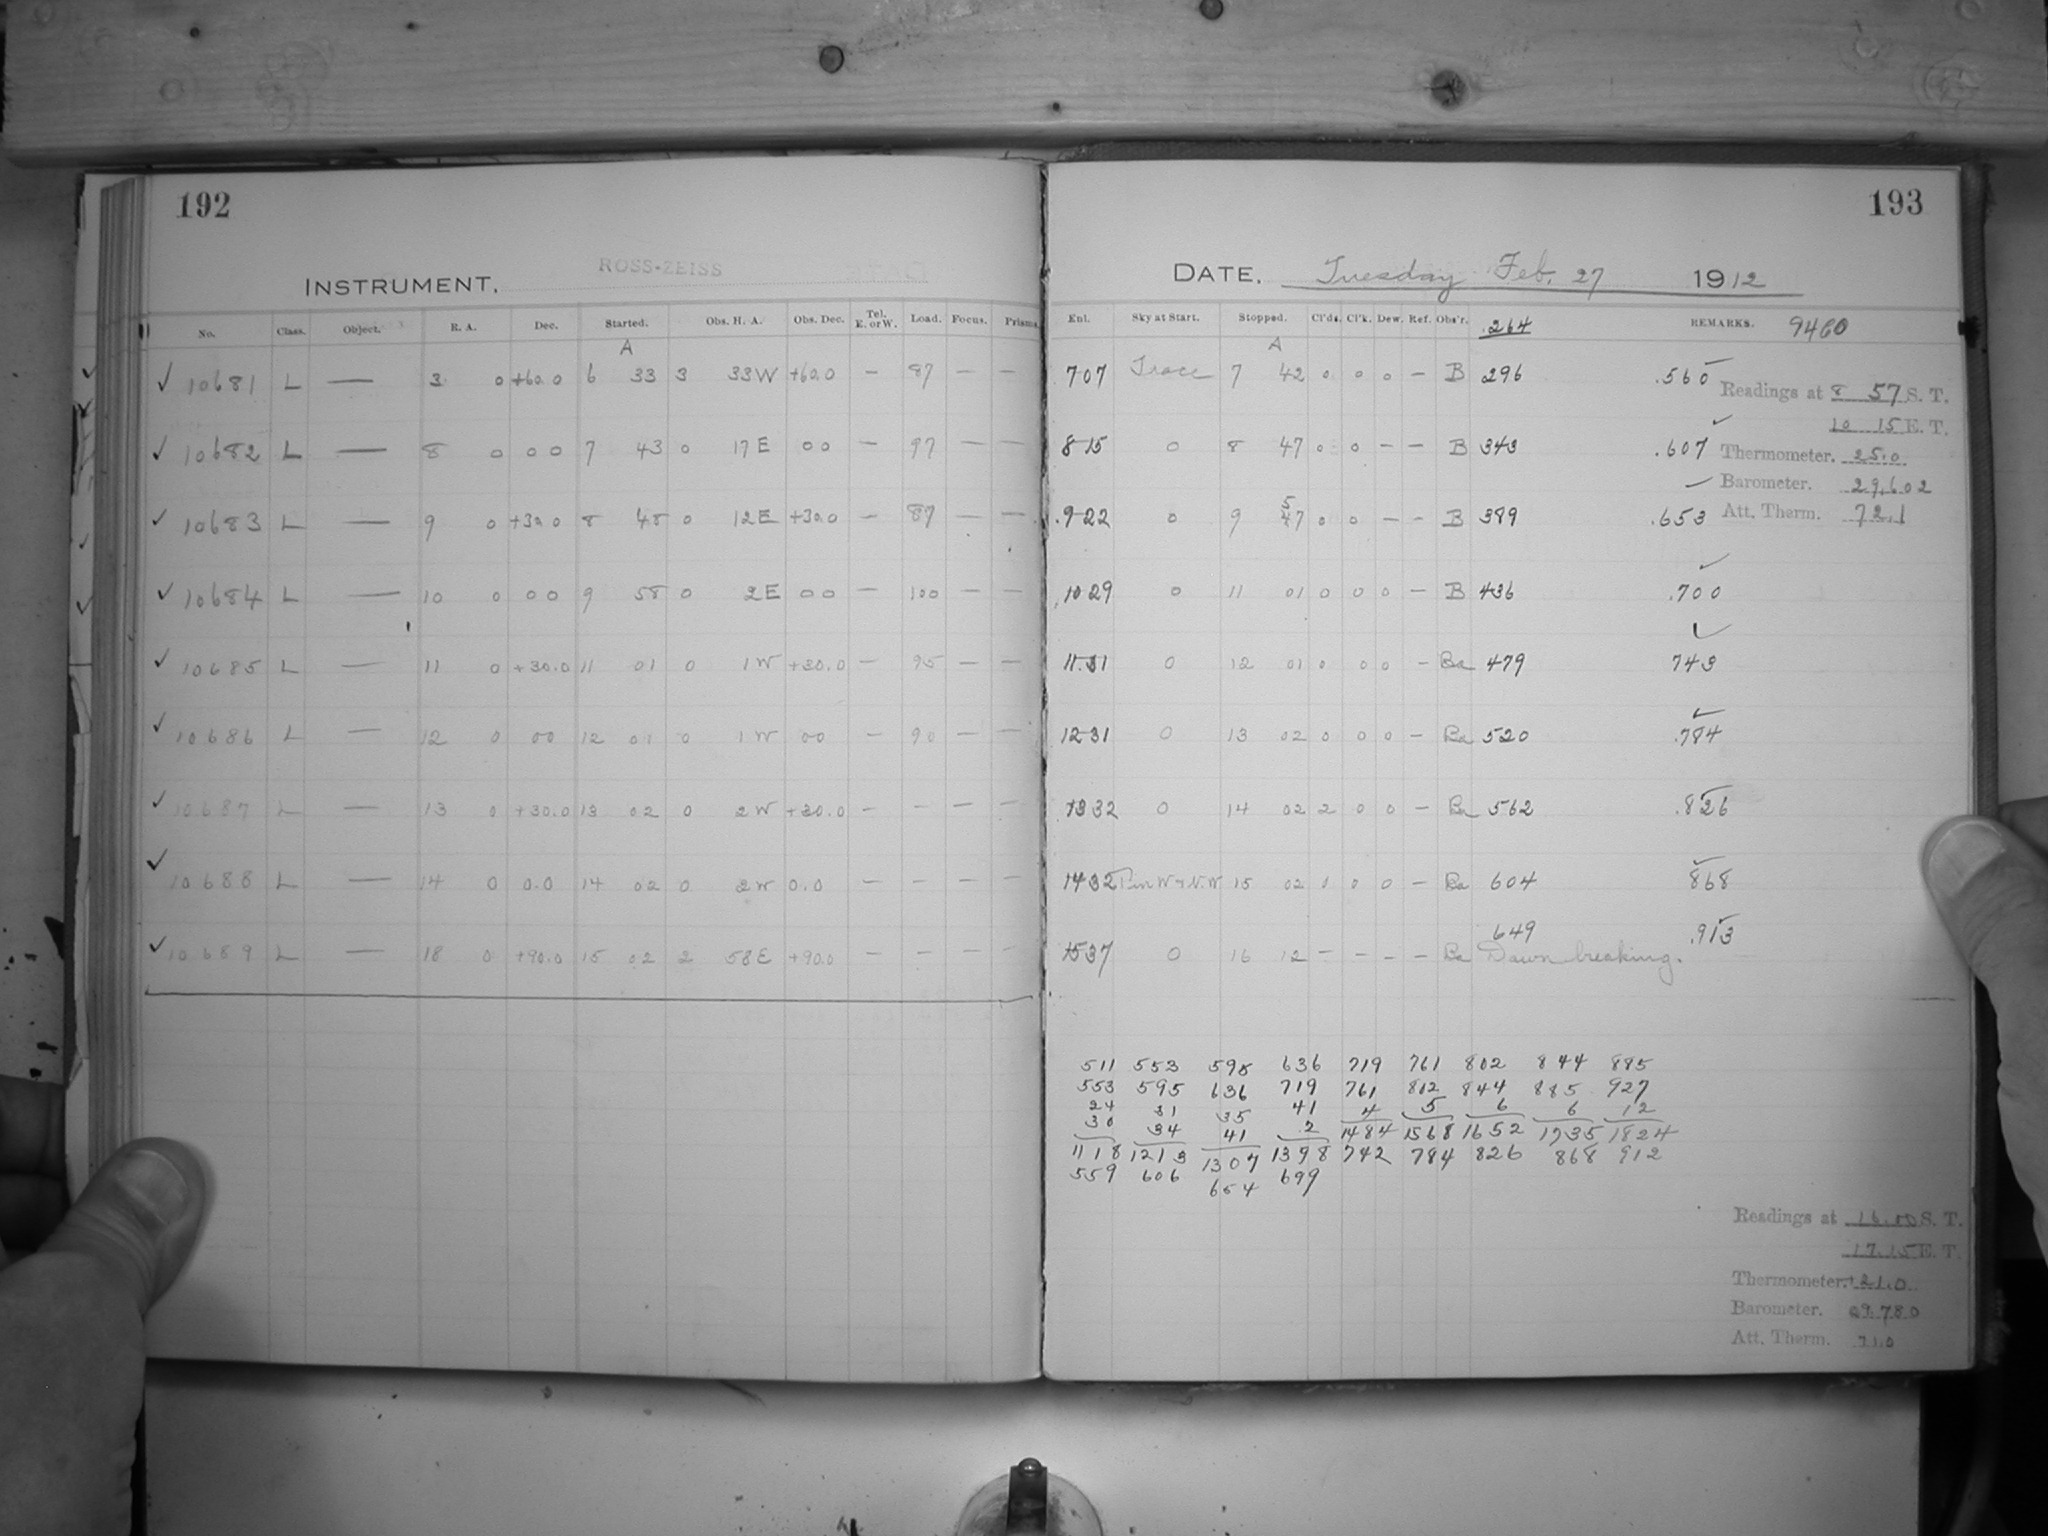 192
INSTRUMENT. ROSS-ZEISS
No. Class. Object. R. A. Dec. Started. Obs. H. A. Obs. Dec. Tel. E. or W. Load. Focus. Prisms.
A
✓ 10681 L — 3 0 +60.0 6 33 3 33W +60.0 — 87 — —
✓ 10682 L — 8 0 0 0 7 43 0 17E 0 0 — 97 — —
✓ 10683 L — 9 0 +30.0 8 48 0 12E +30.0 — 87 — —
✓ 10684 L — 10 0 0 0 9 58 0 2E 0 0 — 100 — —
✓ 10685 L — 11 0 +30.0 11 01 0 1W +30.0 — 95 — —
✓ 10686 L — 12 0 00 12 01 0 1W 00 — 90 — —
✓ 10687 L — 13 0 +30.0 13 02 0 2W +30.0 — — — —
✓ 10688 L — 14 0 0.0 14 02 0 2W 0.0 — — — —
✓ 10689 L — 18 0 +90.0 15 02 2 58E +90.0 — — — —
193
DATE. Tuesday Feb. 27 1912
Enl. Sky at Start. Stopped. Cl'ds. Cl'k. Dew. Ref. Obs'r. .264 REMARKS. 9460
A
707 Trace 7 42 0 0 0 — B 296 .560
815 0 8 47 0 0 — — B 343 .607
922 0 9 57 0 0 — — B 389 .653
1029 0 11 01 0 0 0 — B 436 .700
11.31 0 12 01 0 0 0 — Ba 479 743
1231 0 13 02 0 0 0 — Ba 520 .784
1332 0 14 02 2 0 0 — Ba 562 .826
1432 1 in W + N.W 15 02 1 0 0 — Ba 604 868
1537 0 16 12 — — — — Ba 649 .913
Dawn breaking.
Readings at 8 57 S. T.
10 15 E. T.
Thermometer. 25.0
Barometer. 29.602
Att. Therm. 72.1
511 553 595 636 719 761 802 844 885
553 595 636 719 761 802 844 885 927
24 31 35 41 4 5 6 6 12
30 34 41 2 1484 1568 1652 1735 1824
1118 1213 1307 1398 742 784 826 868 912
559 606 654 699
Readings at 16.00 S. T.
17.15 E. T.
Thermometer. +21.0
Barometer. 29.780
Att. Therm. 71.0